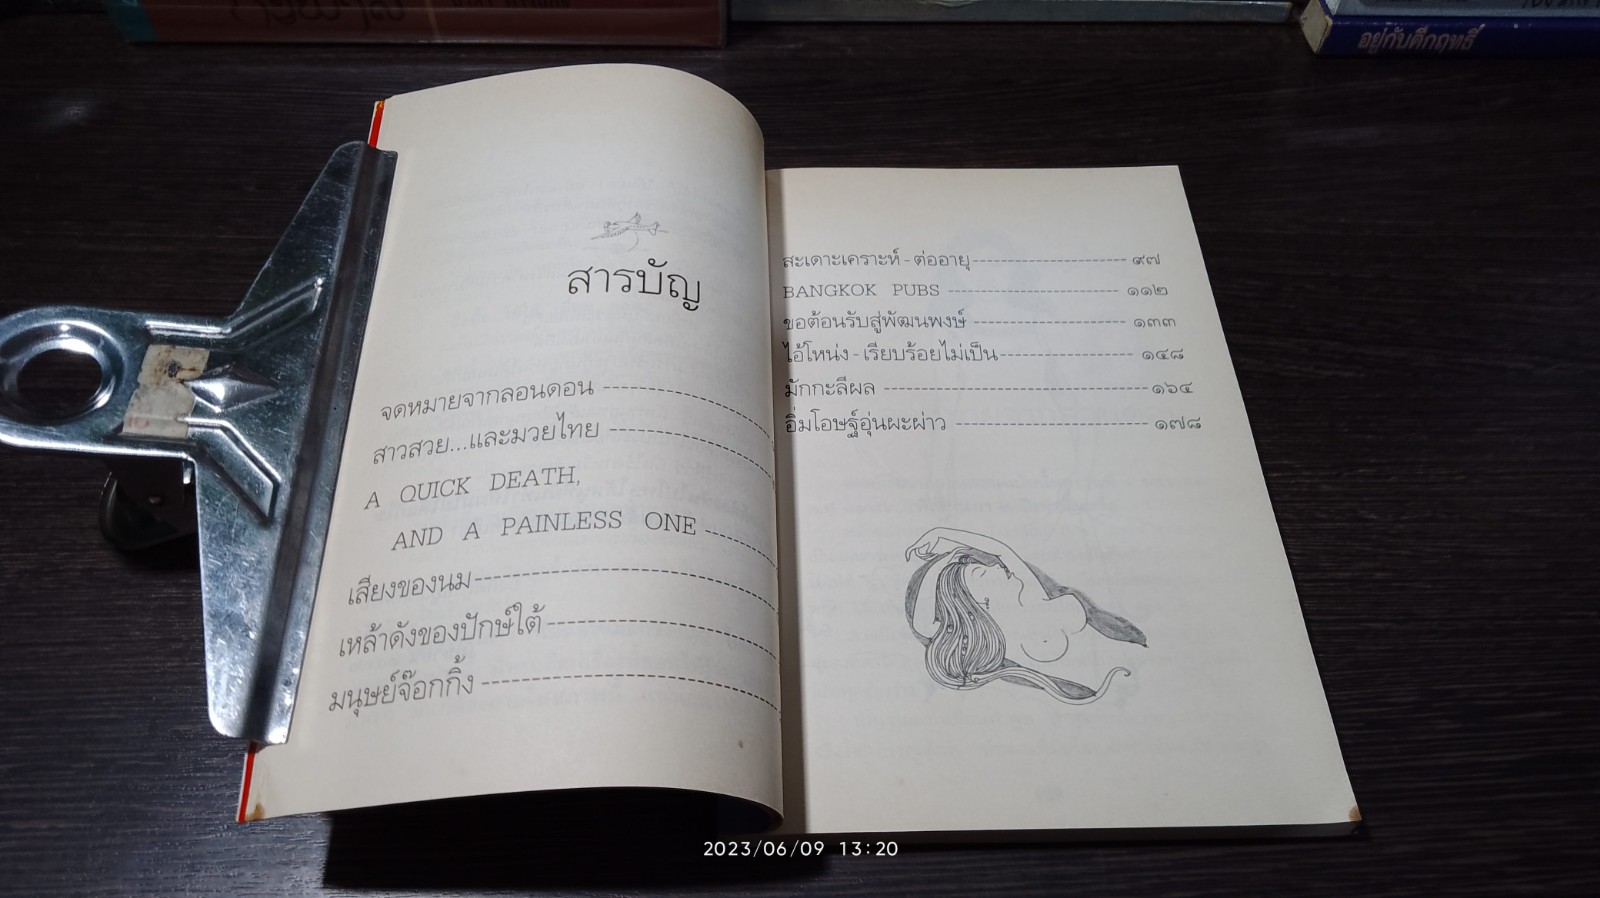 อยู่กับตึกฤทธิ์
สารบัญ
จดหมายจากลอนดอน
สาวสวย...และมวยไทย
A QUICK DEATH,
AND A PAINLESS ONE
เสียงของนม
เหล้าดังของปักษ์ใต้
มนุษย์จ๊อกกิ้ง
สะเดาะเคราะห์ - ต่ออายุ ๙๗
BANGKOK PUBS ๑๑๒
ขอต้อนรับสู่พัฒนพงษ์ ๑๓๓
ไอ้โหน่ง - เรียบร้อยไม่เป็น ๑๔๘
มักกะลีผล ๑๖๔
อิ่มโอษฐ์อุ่นผะผ่าว ๑๗๘
2023/06/09 13:20